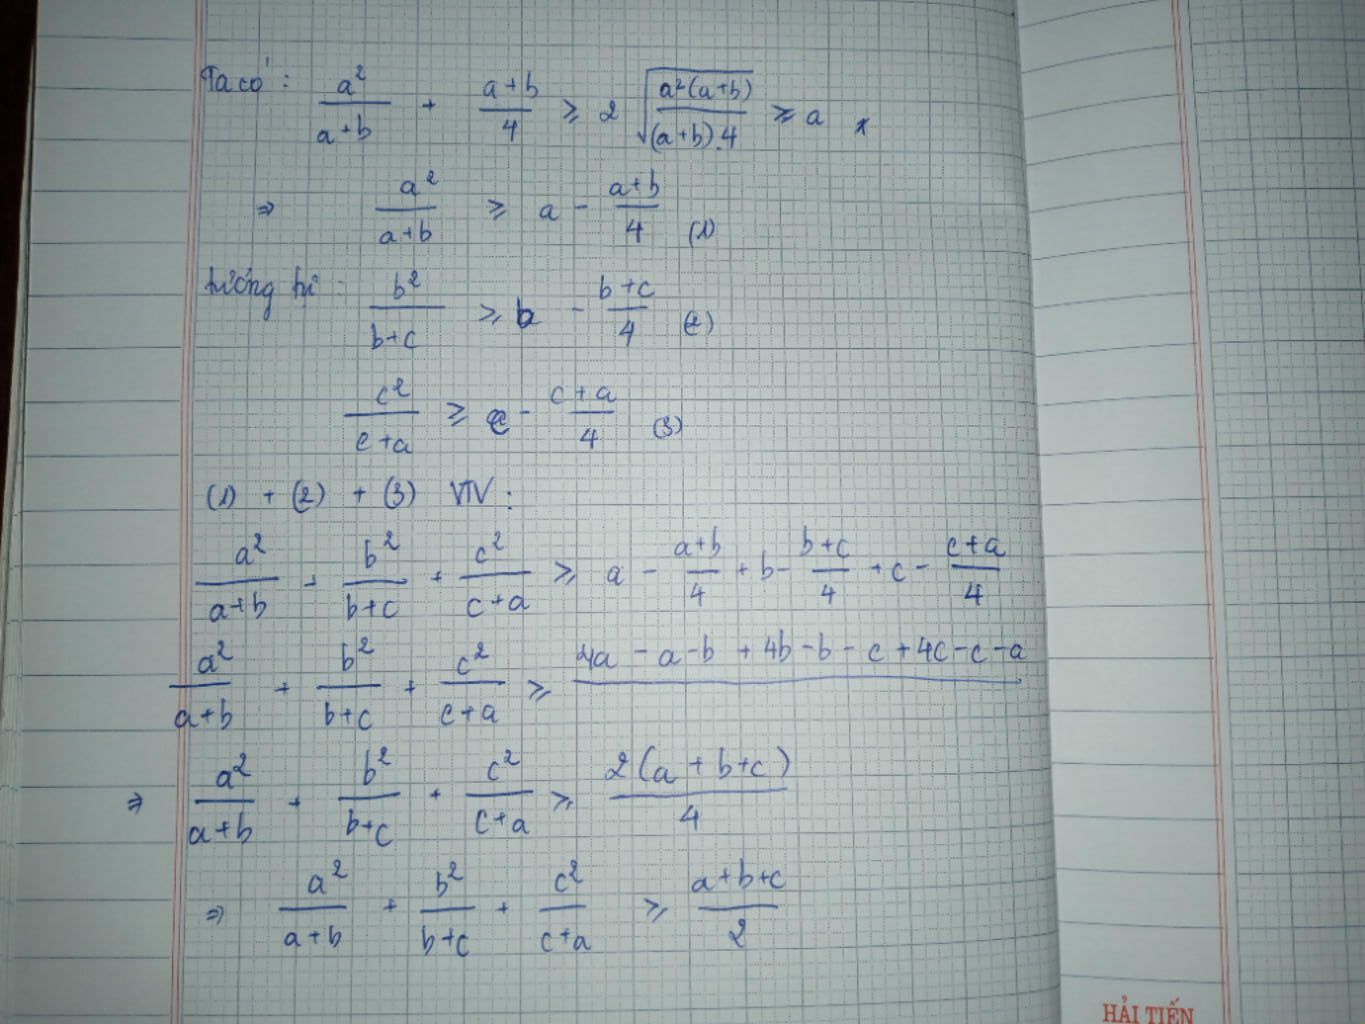 Ta có: a²/(a+b) + (a+b)/4 ≥ 2√(a²(a+b)/((a+b).4)) ≥ a
⇒ a²/(a+b) ≥ a - (a+b)/4 (1)
tương tự: b²/(b+c) ≥ b - (b+c)/4 (2)
c²/(c+a) ≥ c - (c+a)/4 (3)
(1) + (2) + (3) VTV:
a²/(a+b) + b²/(b+c) + c²/(c+a) ≥ a - (a+b)/4 + b - (b+c)/4 + c - (c+a)/4
a²/(a+b) + b²/(b+c) + c²/(c+a) ≥ 4a - a - b + 4b - b - c + 4c - c - a
⇒ a²/(a+b) + b²/(b+c) + c²/(c+a) ≥ 2(a+b+c)/4
⇒ a²/(a+b) + b²/(b+c) + c²/(c+a) ≥ (a+b+c)/2
HẢI TIẾN